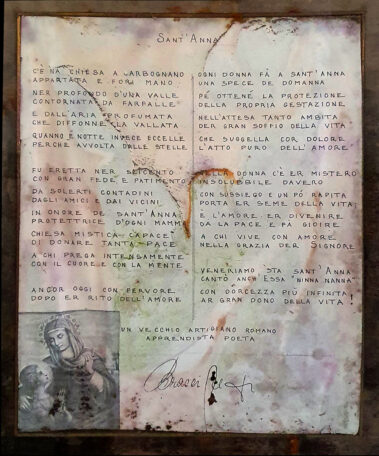 SANT'ANNA
C'È NA CHIESA A CARBOGNANO
APPARTATA E FORI MANO
NER PROFONDO D'UNA VALLE
CONTORNATA DA FARFALLE
E DALL'ARIA PROFUMATA
CHE DIFFONNE LA VALLATA
QUANNO È NOTTE INVECE ECCELLE
PERCHÉ AVVOLTA DALLE STELLE
FU ERETTA NER SEICENTO
CON GRAN FEDE E PATIMENTO
DA SOLERTI CONTADINI
DAGLI AMICI E DAI VICINI
IN ONORE DE SANT'ANNA
PROTETTRICE D'OGNI MAMMA
CHIESA MISTICA CAPACE
DI DONARE TANTA PACE
A CHI PREGA INTENSAMENTE
CON IL CUORE E CON LA MENTE
ANCOR OGGI CON FERVORE
DOPO ER RITO DELL'AMORE
OGNI DONNA FÀ A SANT'ANNA
UNA SPECE DE DOMANNA
PE OTTENÉ LA PROTEZIONE
DELLA PROPRIA GESTAZIONE
NELL'ATTESA TANTO AMBITA
DER GRAN SOFFIO DELLA VITA
CHE SUGGELLA COR DOLORE
L'ATTO PURO DELL'AMORE
NELLA DONNA C'È ER MISTERO
INSOLUBILE DAVERO
CON SUSSIEGO E UN PÒ RAPITA
PORTA ER SEME DELLA VITA
E L'AMORE ER DIVENIRE
DA LA PACE E FA GIOIRE
A CHI VIVE CON AMORE
NELLA GRAZIA DER SIGNORE
VENERIAMO STA SANT'ANNA
CANTÒ ANCH'ESSA "NINNA NANNA"
CON DORCEZZA PIÙ INFINITA
AR GRAN DONO DELLA VITA!
UN VECCHIO ARTIGIANO ROMANO
APPRENDISTA POETA